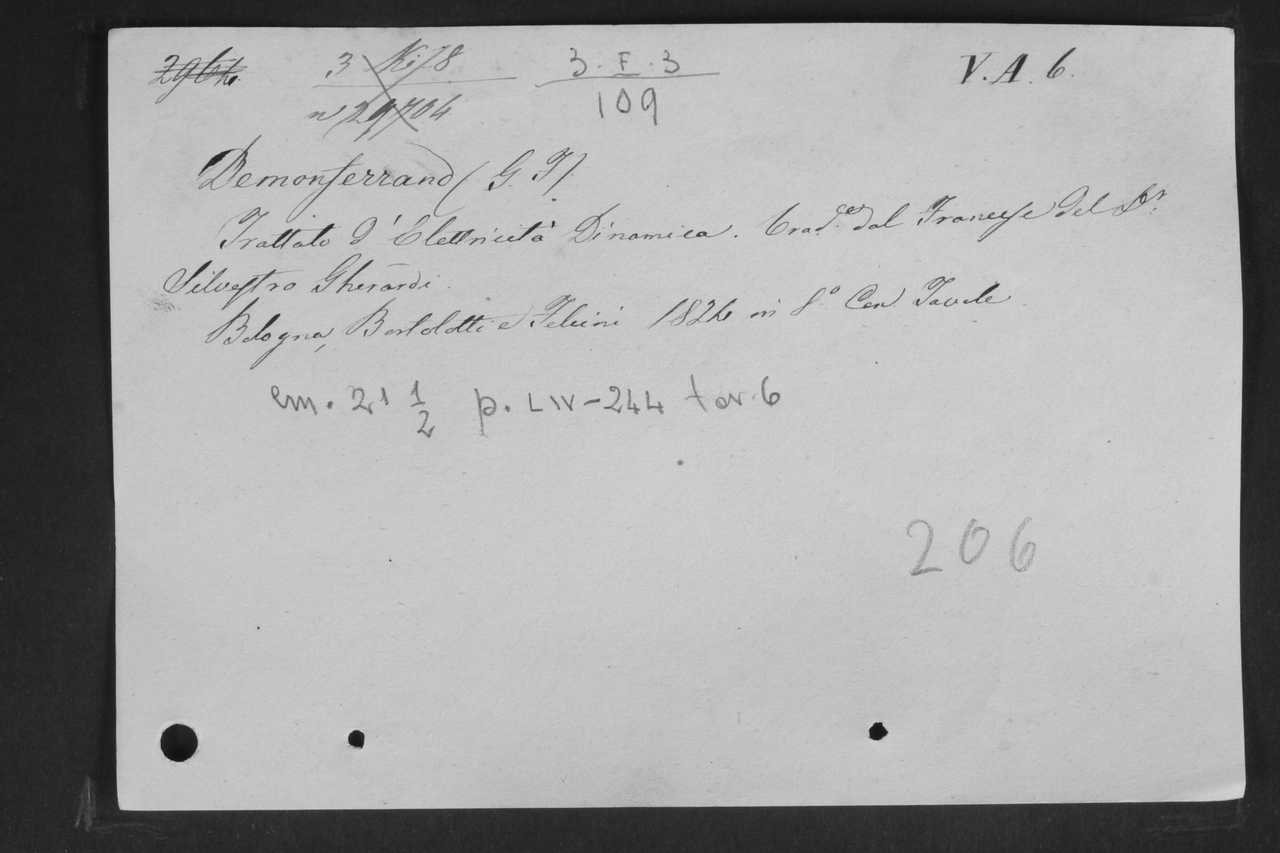 2964 3 Ki78 3. F. 3 V. A. 6.
n 29704 109
Demonferrand (G. F.)
Trattato d'Elettricità Dinamica. Trad.e dal Francese del Dr
Silvestro Gherardi.
Bologna, Bortolotti e Felicini 1824 in 8.° Con Tavole
cm. 21 1/2 p. LIV-244 tav. 6
206